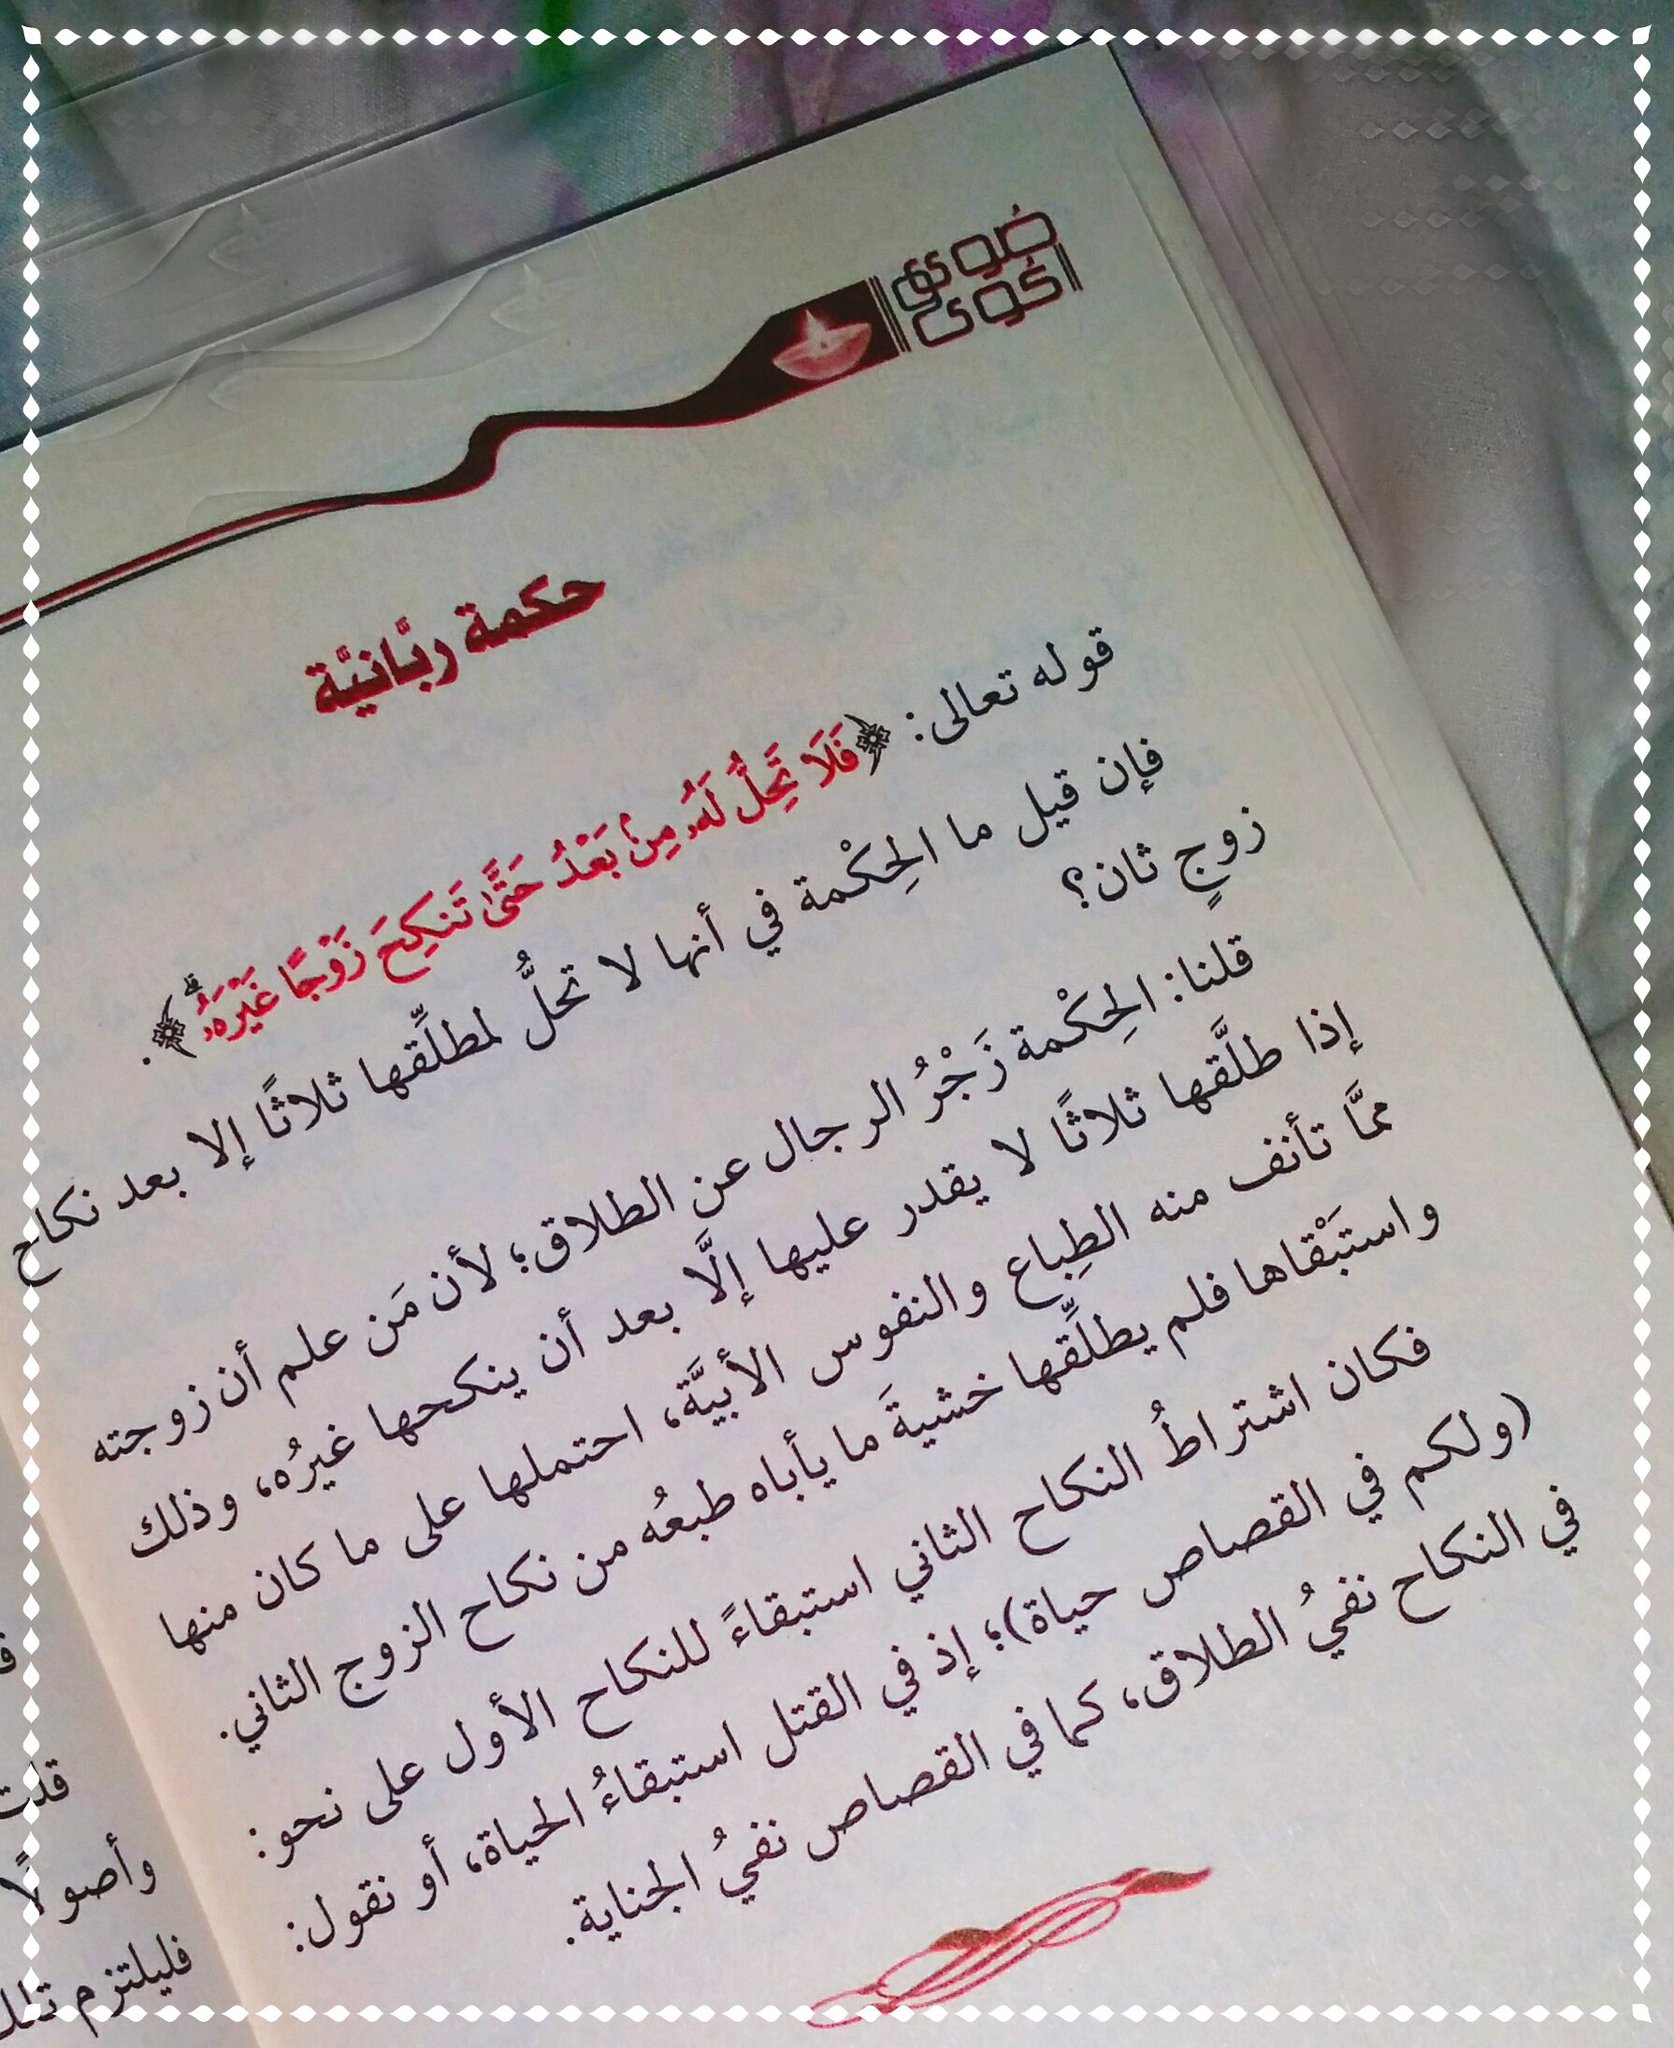 حكمة ربَّانيَّة
قوله تعالى: ﴿فَلَا تَحِلُّ لَهُۥ مِنۢ بَعْدُ حَتَّىٰ تَنكِحَ زَوْجًا غَيْرَهُۥ ۗ﴾.
فإن قيل ما الحِكْمة في أنها لا تحلُّ لمطلِّقها ثلاثًا إلا بعد نكاح
زوجٍ ثان؟
قلنا: الحِكْمة زَجْرُ الرجال عن الطلاق؛ لأن مَن علم أن زوجته
إذا طلَّقها ثلاثًا لا يقدر عليها إلَّا بعد أن ينكحها غيرُه، وذلك
ممَّا تأنف منه الطِباع والنفوس الأبيَّة، احتملها على ما كان منها
واستَبْقاها فلم يطلِّقها خشيةَ ما يأباه طبعُه من نكاح الزوج الثاني.
فكان اشتراطُ النكاح الثاني استبقاءً للنكاح الأول على نحو:
(ولكم في القصاص حياة)؛ إذ في القتل استبقاءُ الحياة، أو نقول:
في النكاح نفيُ الطلاق، كما في القصاص نفيُ الجناية.
قلت
وأصولًا
فليلتزم